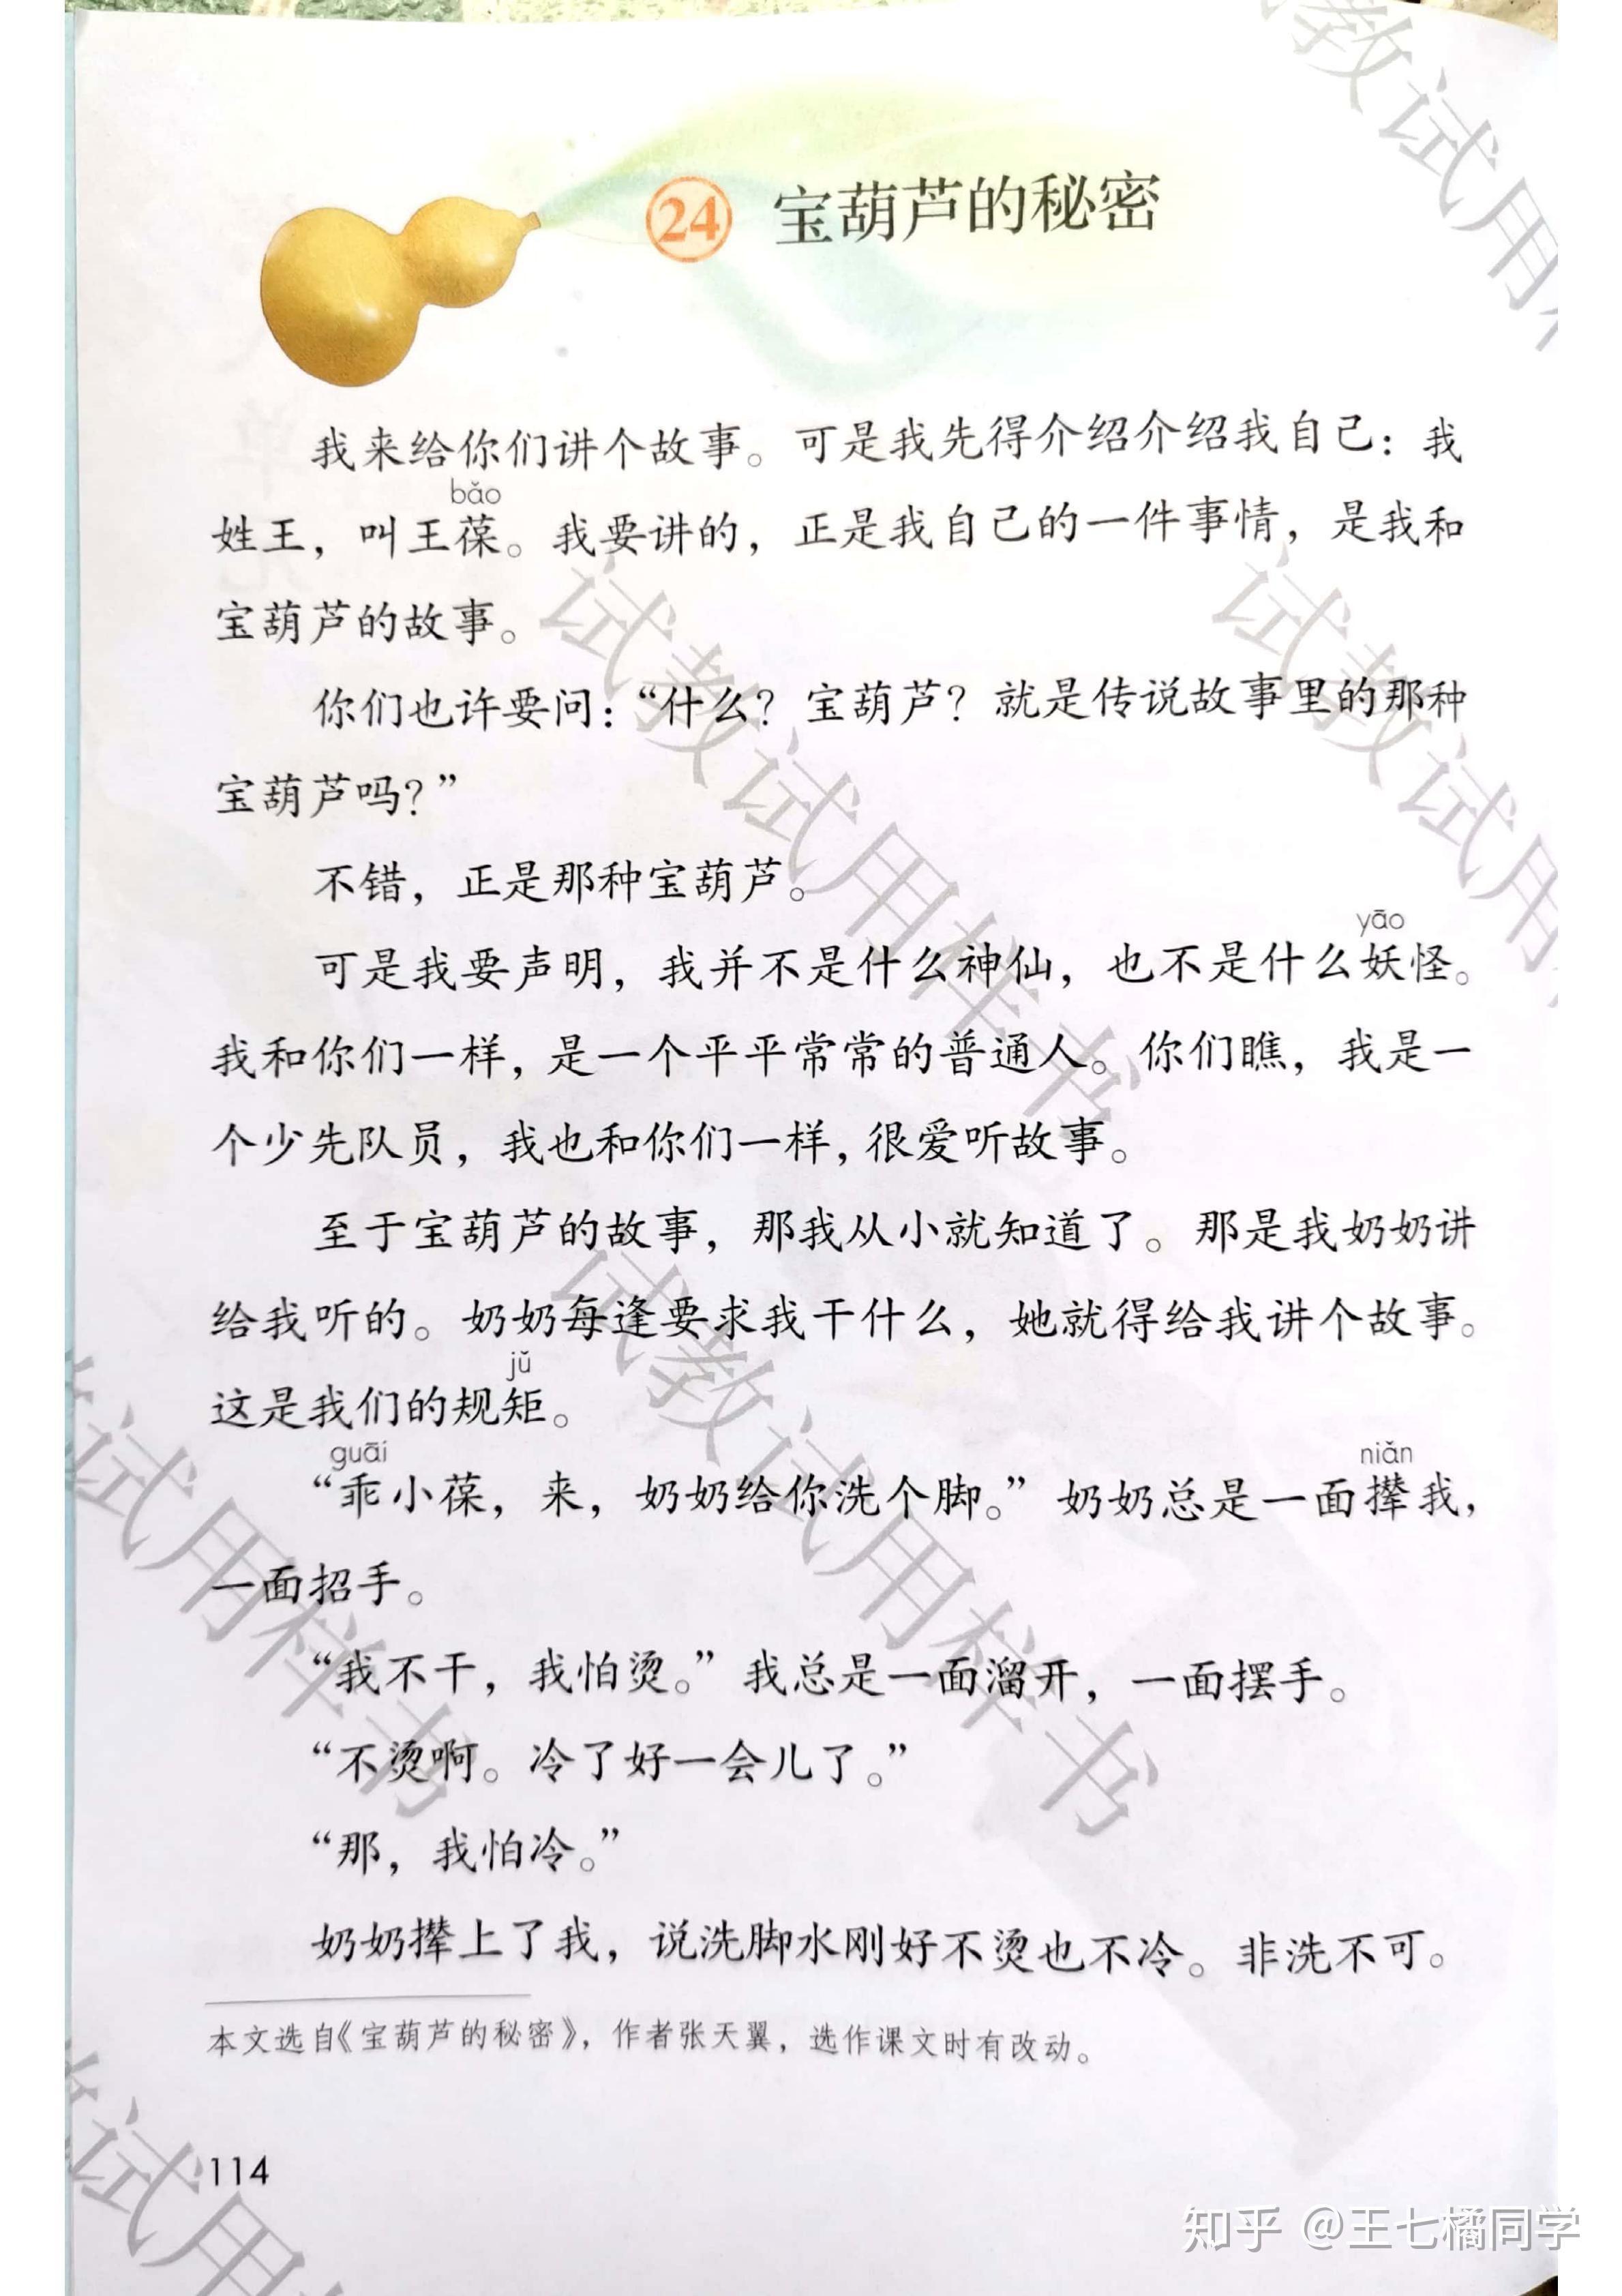 24 宝葫芦的秘密
我来给你们讲个故事。可是我先得介绍介绍我自己：我
bǎo
姓王，叫王葆。我要讲的，正是我自己的一件事情，是我和
宝葫芦的故事。
你们也许要问：“什么？宝葫芦？就是传说故事里的那种
宝葫芦吗？”
不错，正是那种宝葫芦。
yāo
可是我要声明，我并不是什么神仙，也不是什么妖怪。
我和你们一样，是一个平平常常的普通人。你们瞧，我是一
个少先队员，我也和你们一样，很爱听故事。
至于宝葫芦的故事，那我从小就知道了。那是我奶奶讲
给我听的。奶奶每逢要求我干什么，她就得给我讲个故事。
jǔ
这是我们的规矩。
guāi niǎn
“乖小葆，来，奶奶给你洗个脚。”奶奶总是一面撵我，
一面招手。
“我不干，我怕烫。”我总是一面溜开，一面摆手。
“不烫啊。冷了好一会儿了。”
“那，我怕冷。”
奶奶撵上了我，说洗脚水刚好不烫也不冷。非洗不可。
本文选自《宝葫芦的秘密》，作者张天翼，选作课文时有改动。
114
试教试用样书
试教试用样书
试教试用样书
知乎 @王七橘同学